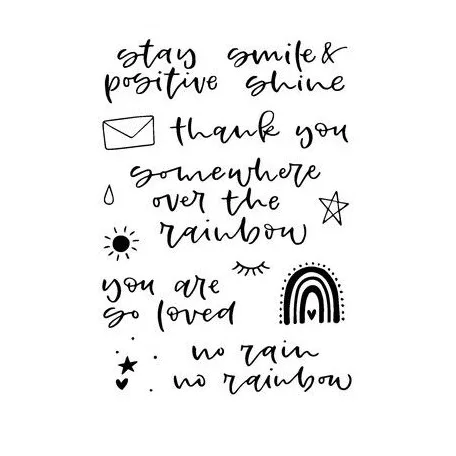 stay smile &
positive shine
thank you
somewhere
over the
rainbow
you are
so loved
no rain
no rainbow